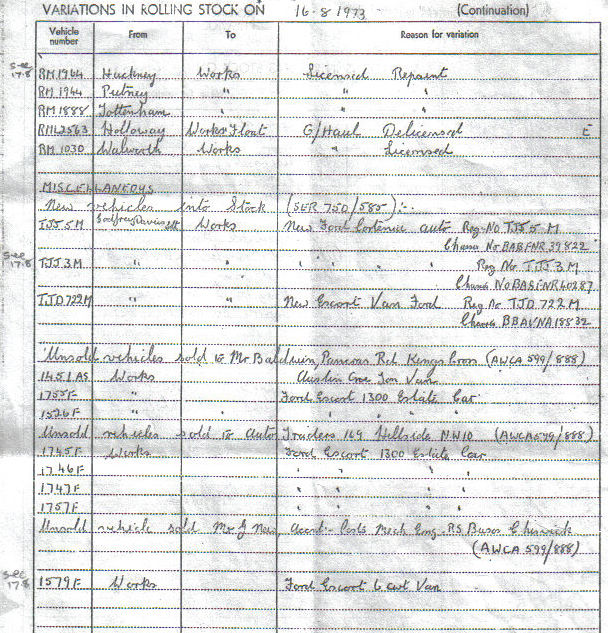 VARIATIONS IN ROLLING STOCK ON 16-8-1973 (Continuation)
Vehicle number From To Reason for variation
See 17.8 RM1964 Hackney Works Licensed Repaint
RM 1944 Putney " " "
RM 1888 Tottenham " " "
RML2563 Holloway Works Float G/Haul Delicensed E
RM 1030 Walworth Works " Licensed
MISCELLANEOUS
New vehicles into Stock (SER 750/585):-
TJJ 5 M Godfrey Davis Works New Ford Cortina auto Reg No TJJ 5 M
Chassis No BABFNR39822
See 17.8 TJJ 3M " " " " " " Reg No TJJ 3 M
Chassis No BABFNR40287
TJD 722M " " New Escort Van Ford Reg No TJD 722 M
Chassis BBAVNA18532
Unsold vehicles sold to Mr Baldwin, Pancras Rd Kings Cross (AWCA 599/888)
1451 AS Works Austin One Ton Van
1755F " Ford Escort 1300 Estate Car
1526F " " " " " "
Unsold vehicles sold to Auto Traders 169 Hillside NW10 (AWCA 599/888)
1745F Works Ford Escort 1300 Estate Car
1746F " " " "
1747F " " " "
1757F " " " "
Unsold vehicle sold Mr G New, Acct. Costs Mech Eng. RS Buses Chiswick
(AWCA 599/888)
See 17.8 1579F Works Ford Escort 6 cwt Van